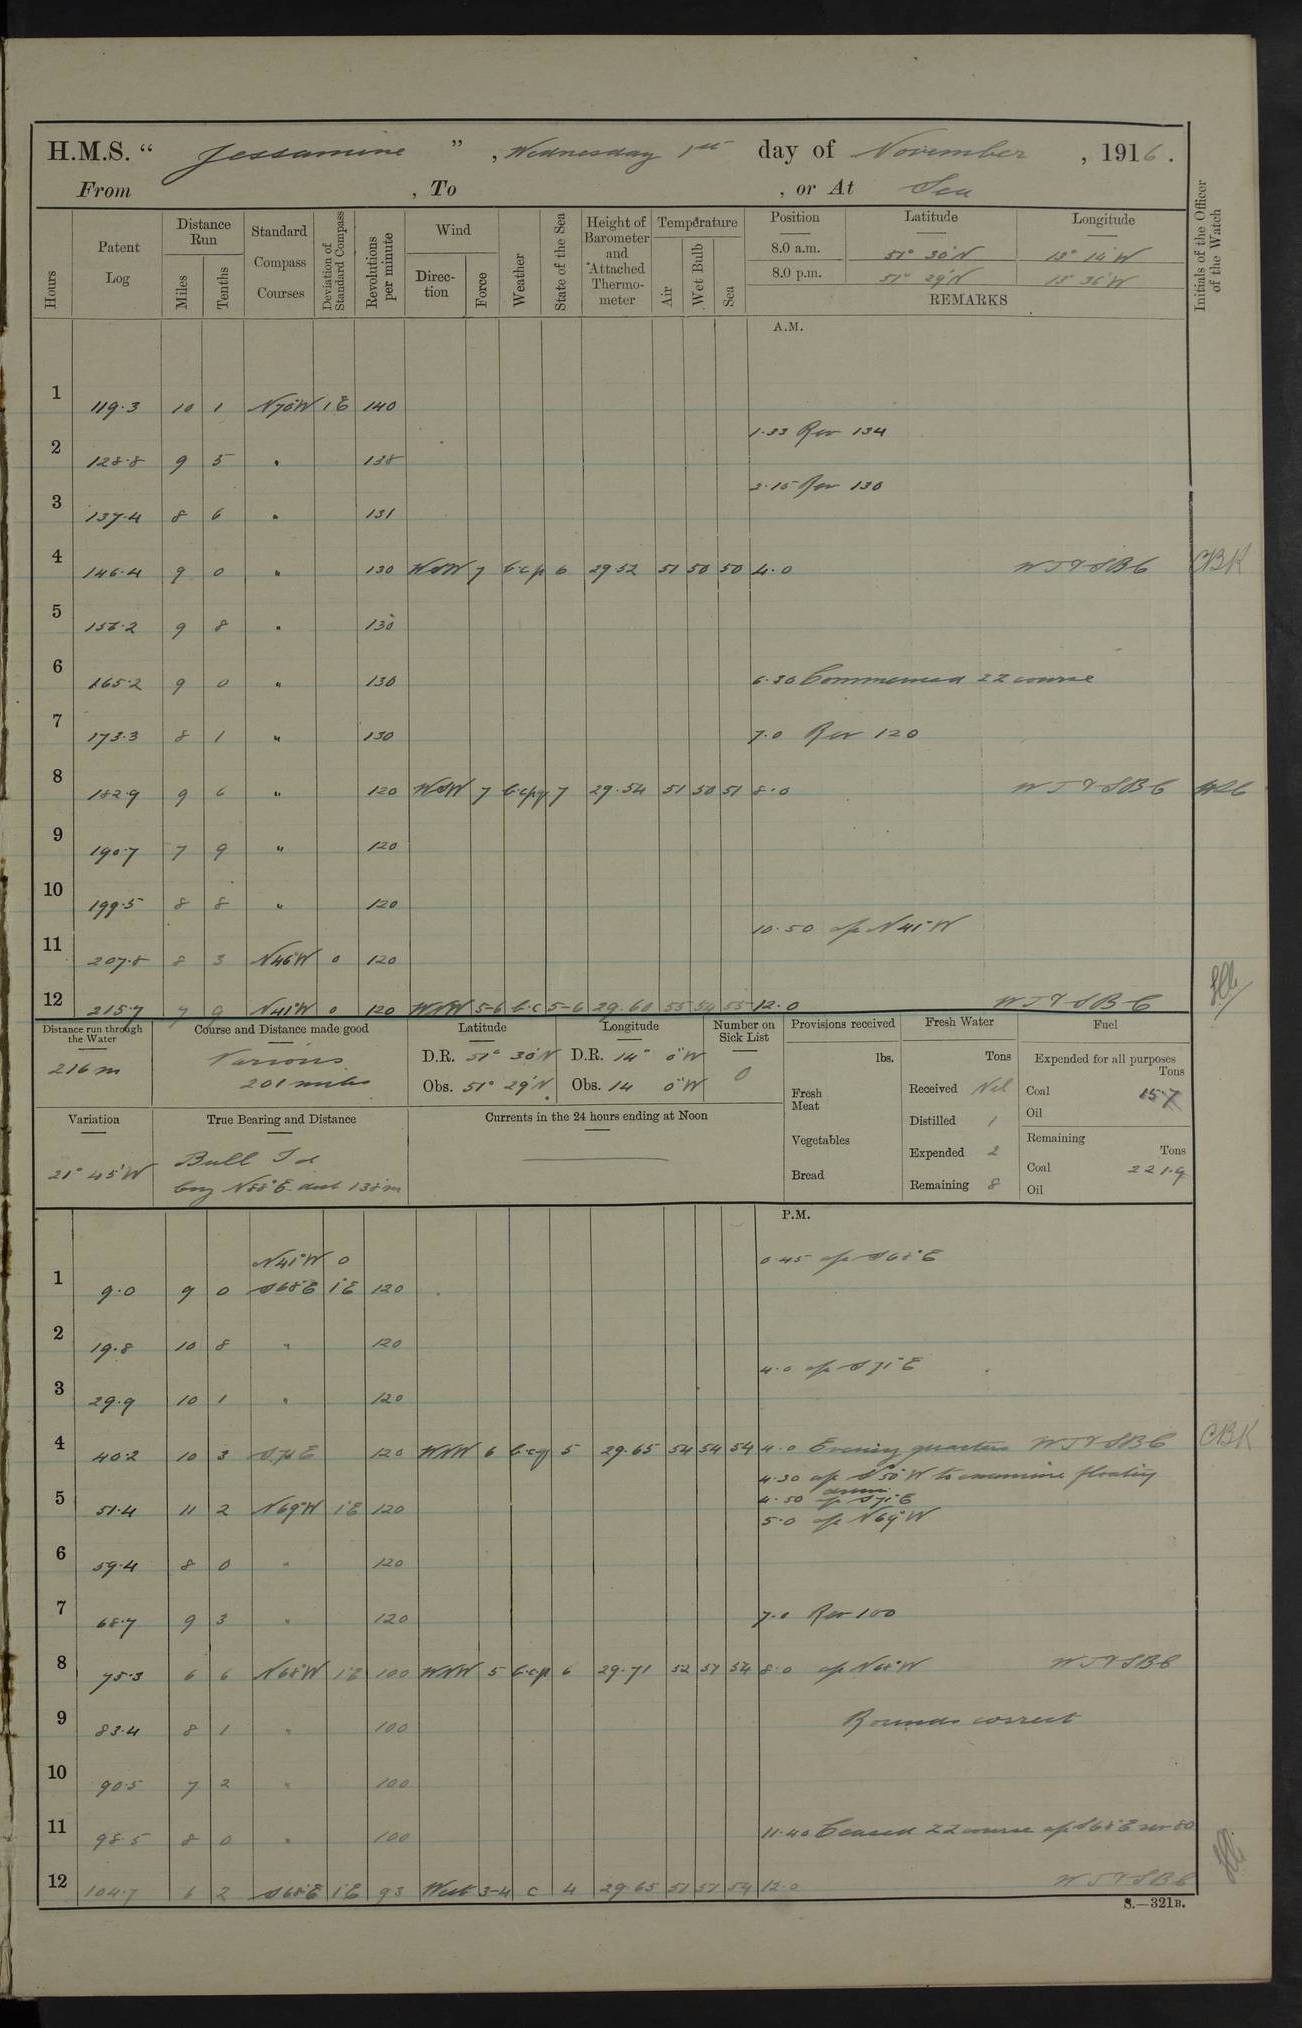 H.M.S. " Jessamine " , Wednesday 1st day of November , 1916.
From , To , or At Sea
Hours
Patent Log
Distance Run
Miles
Tenths
Standard Compass Courses
Deviation of Standard Compass
Revolutions per minute
Wind
Direction
Force
Weather
State of the Sea
Height of Barometer and Attached Thermometer
Temperature
Air
Wet Bulb
Sea
Position Latitude Longitude
8.0 a.m. 51° 30'N 13° 14'W
8.0 p.m. 51° 29'N 13° 36'W
REMARKS
Initials of the Officer of the Watch
A.M.
1 119.3 10 1 N70W 1E 140
1.33 Rev 134
2 128.8 9 5 " 138
2.15 Rev 130
3 137.4 8 6 " 131
4 146.4 9 0 " 130 WSW 7 b.c.p 6 29.52 51 50 50 4.0 WT & SBC CBK
5 156.2 9 8 " 130
6 165.2 9 0 " 130 6.30 Commenced ZZ course
7 173.3 8 1 " 130 7.0 Rev 120
8 182.9 9 6 " 120 WSW 7 b.c.p.q 7 29.54 51 50 51 8.0 WT & SBC
9 190.7 7 9 " 120
10 199.5 8 8 " 120
10.50 a/c N41°W
11 207.8 8 3 N46W 0 120
12 215.7 7 9 N41°W 0 120 WNW 5-6 b.c 5-6 29.60 55 54 55 12.0 WT & SBC
Distance run through the Water
216 m
Course and Distance made good
Various
201 miles
Latitude
D.R. 51° 30'N
Obs. 51° 29'N
Longitude
D.R. 14° 0'W
Obs. 14 0'W
Number on Sick List
0
Provisions received
lbs.
Fresh Meat
Vegetables
Bread
Fresh Water
Tons
Received Nil
Distilled 1
Expended 2
Remaining 8
Fuel
Expended for all purposes
Tons
Coal 15.7
Oil
Remaining
Tons
Coal 221.9
Oil
Variation
21° 45'W
True Bearing and Distance
Bull Id
brg N88°E dist 138m
Currents in the 24 hours ending at Noon
P.M.
N41°W 0 0.45 a/c S68°E
1 9.0 9 0 S68°E 1°E 120
2 19.8 10 8 " 120
4.0 a/c S71°E
3 29.9 10 1 " 120
4 40.2 10 3 S71E 120 WNW 6 b.c.q 5 29.65 54 54 54 4.0 Evening quarters WT & SBC CBK
4.30 a/c S50°W to examine floating
drum
4.50 a/c S71°E
5 51.4 11 2 N69°W 1°E 120
5.0 a/c N69°W
6 59.4 8 0 " 120
7 68.7 9 3 " 120 7.0 Rev 100
8 75.3 6 6 N68°W 1°E 100 WNW 5 b.c.p 6 29.71 52 51 54 8.0 a/c N68°W WT & SBC
9 83.4 8 1 " 100 Rounds correct
10 90.5 7 2 " 100
11 98.5 8 0 " 100 11.40 Ceased ZZ course a/c S68°E rev 80
12 104.7 6 2 S68°E 1°E 93 West 3-4 c 4 29.65 51 51 54 12.0 WT & SBC
S.—321B.